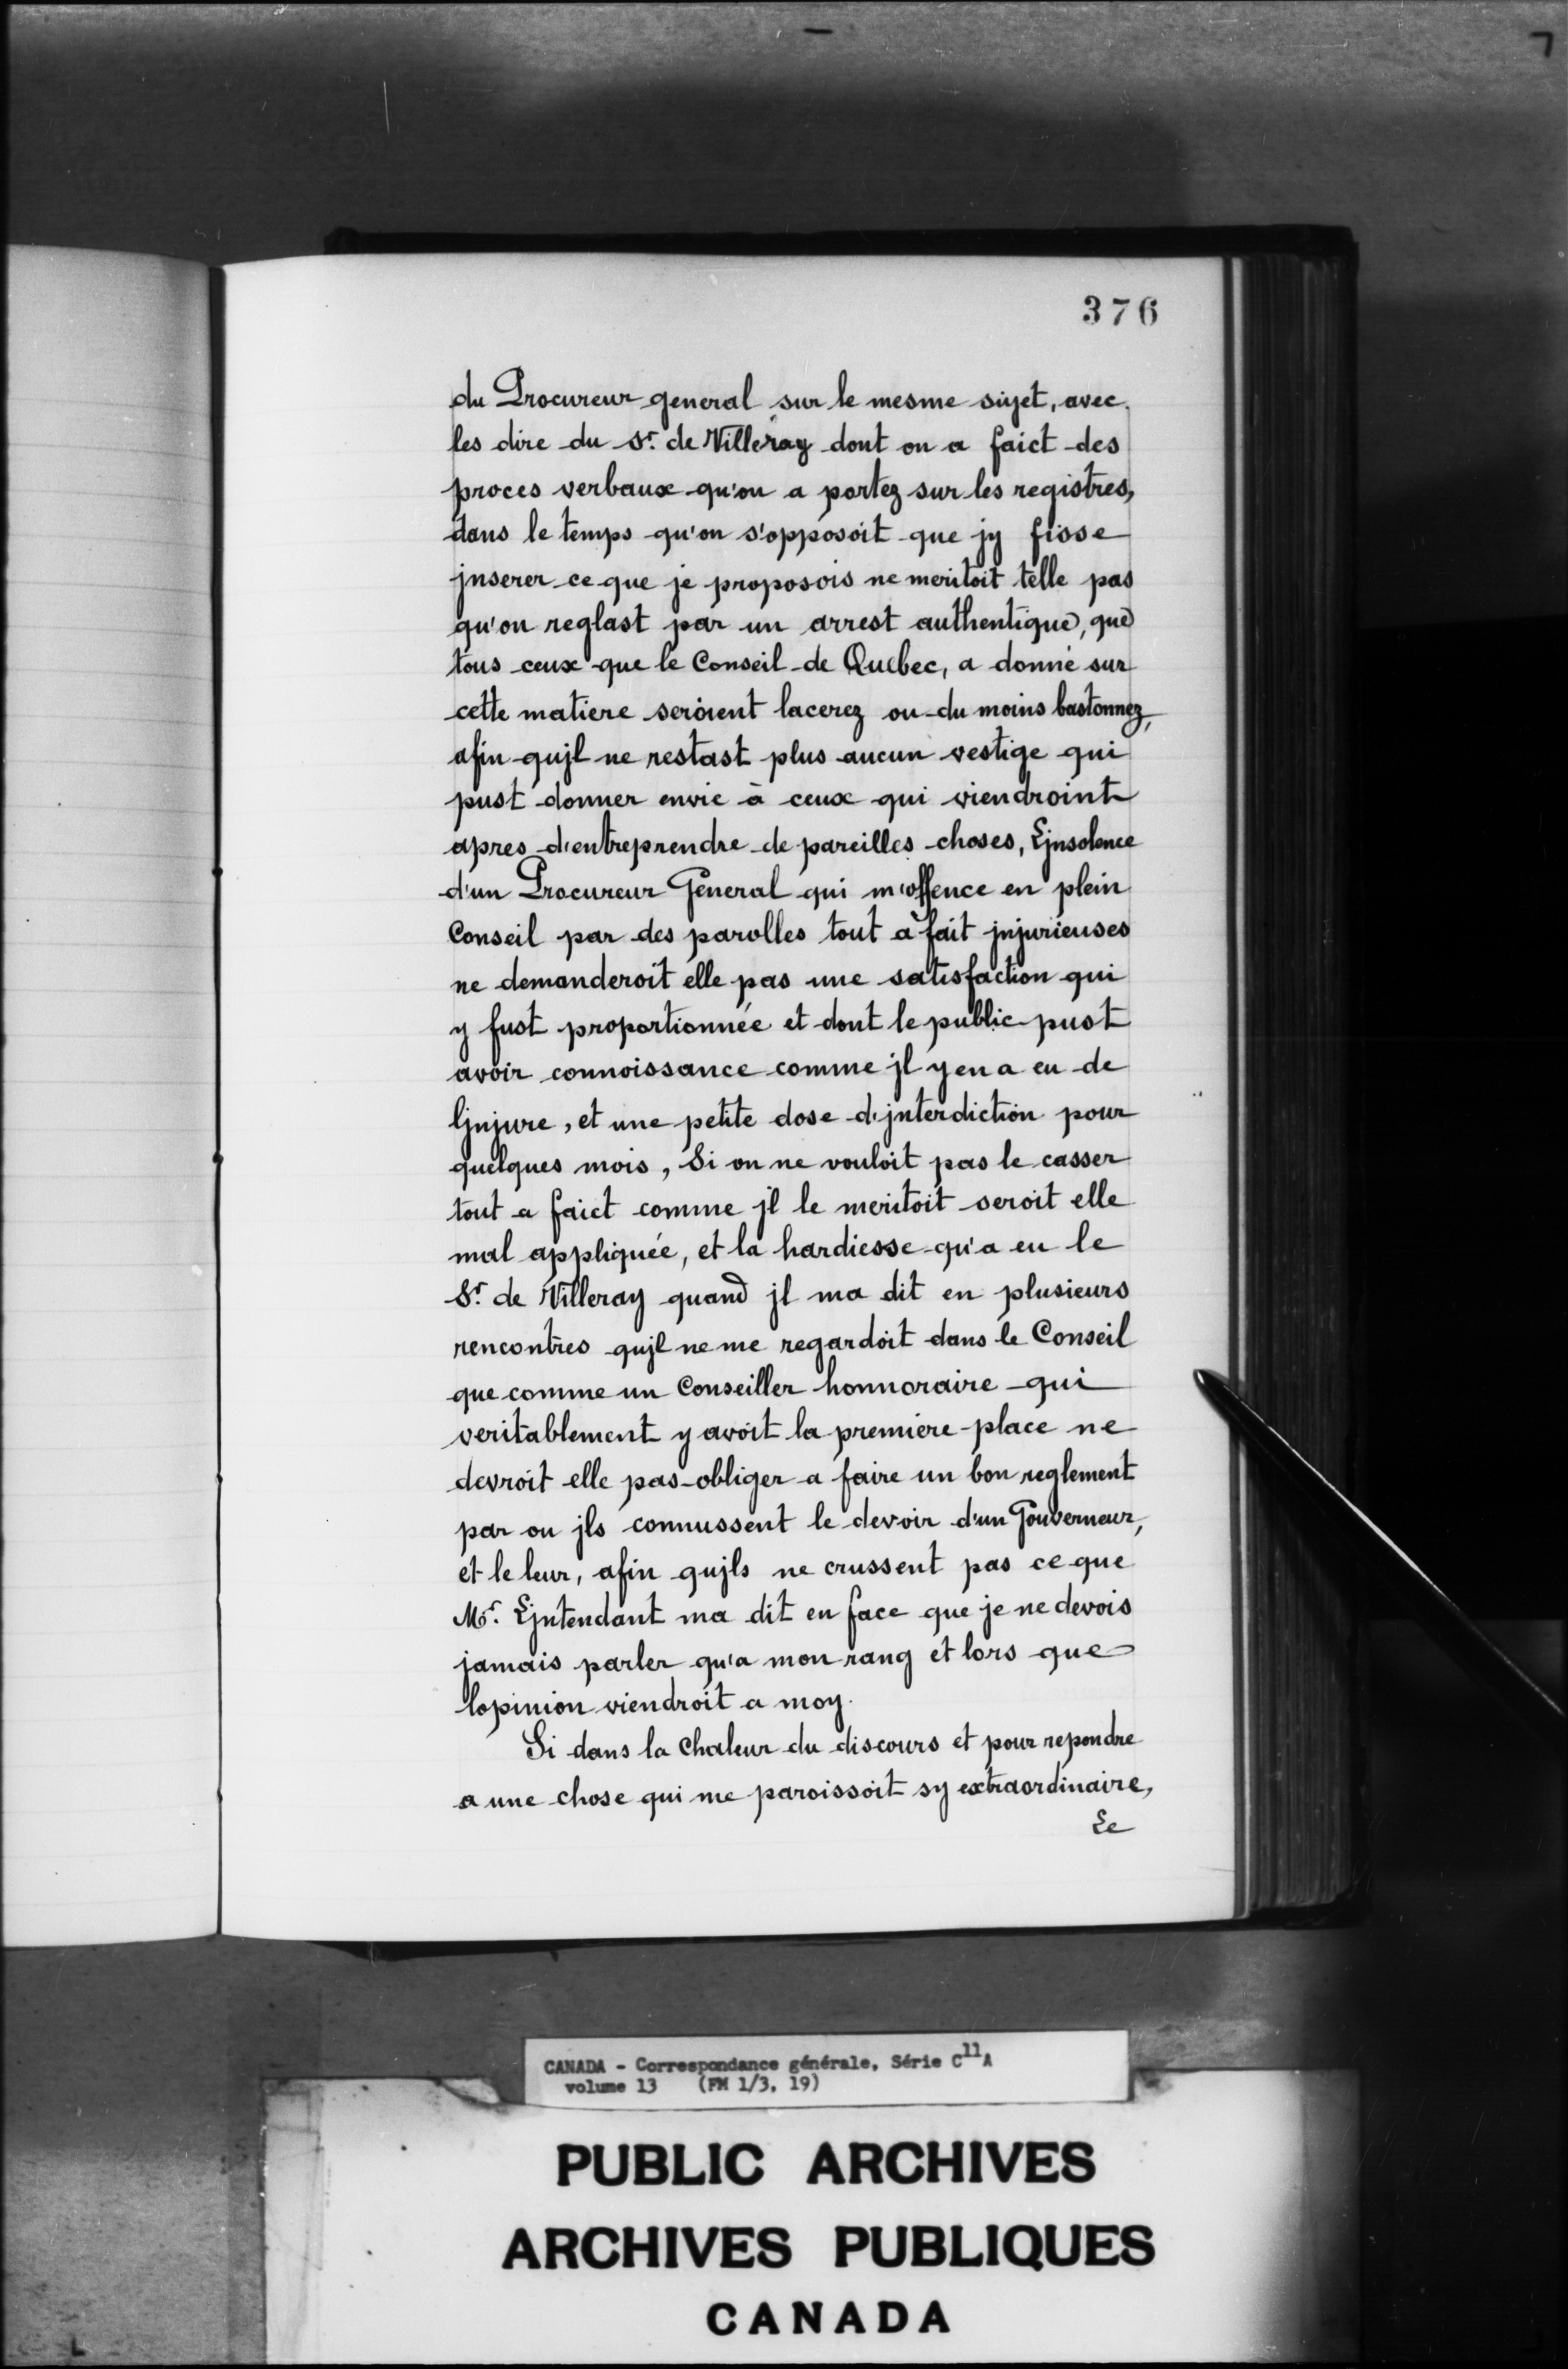 376
du Procureur general sur le mesme sujet, avec
les dire du Sr. de Villeray dont on a faict des
proces verbaux qu'on a portez sur les registres,
dans le temps qu'on s'opposoit que jy fisse
jnserer ce que je proposois ne meritoit telle pas
qu'on reglast par un arrest authentique, que
tous ceux que le Conseil de Quebec, a donné sur
cette matiere seroient lacerez ou du moins bastonnez,
afin qujl ne restast plus aucun vestige qui
pust donner envie à ceux qui viendroint
apres d'entreprendre de pareilles choses, Ljnsolence
d'un Procureur General qui m'offence en plein
Conseil par des parolles tout à fait jnjurieuses
ne demanderoit elle pas une satisfaction qui
y fust proportionnée et dont le public pust
avoir connoissance comme jl y en a eu de
ljnjure, et une petite dose d'jnterdiction pour
quelques mois, Si on ne vouloit pas le casser
tout a faict comme jl le meritoit seroit elle
mal appliquée, et la hardiesse qu'a eu le
Sr. de Villeray quand jl ma dit en plusieurs
rencontres qujl ne me regardoit dans le Conseil
que comme un Conseiller honnoraire qui
veritablement y avoit la premiere place ne
devroit elle pas obliger a faire un bon reglement
par ou jls connussent le devoir d'un Gouverneur,
et le leur, afin qujls ne crussent pas ce que
Mr. Ljntendant ma dit en face que je ne devois
jamais parler qu'a mon rang et lors que
lopinion viendroit a moy.
Si dans la chaleur du discours et pour repondre
a une chose qui me paroissoit sy extraordinaire,
Le
CANADA - Correspondance générale, Série C11A
volume 13 (FM 1/3, 19)
PUBLIC ARCHIVES
ARCHIVES PUBLIQUES
CANADA